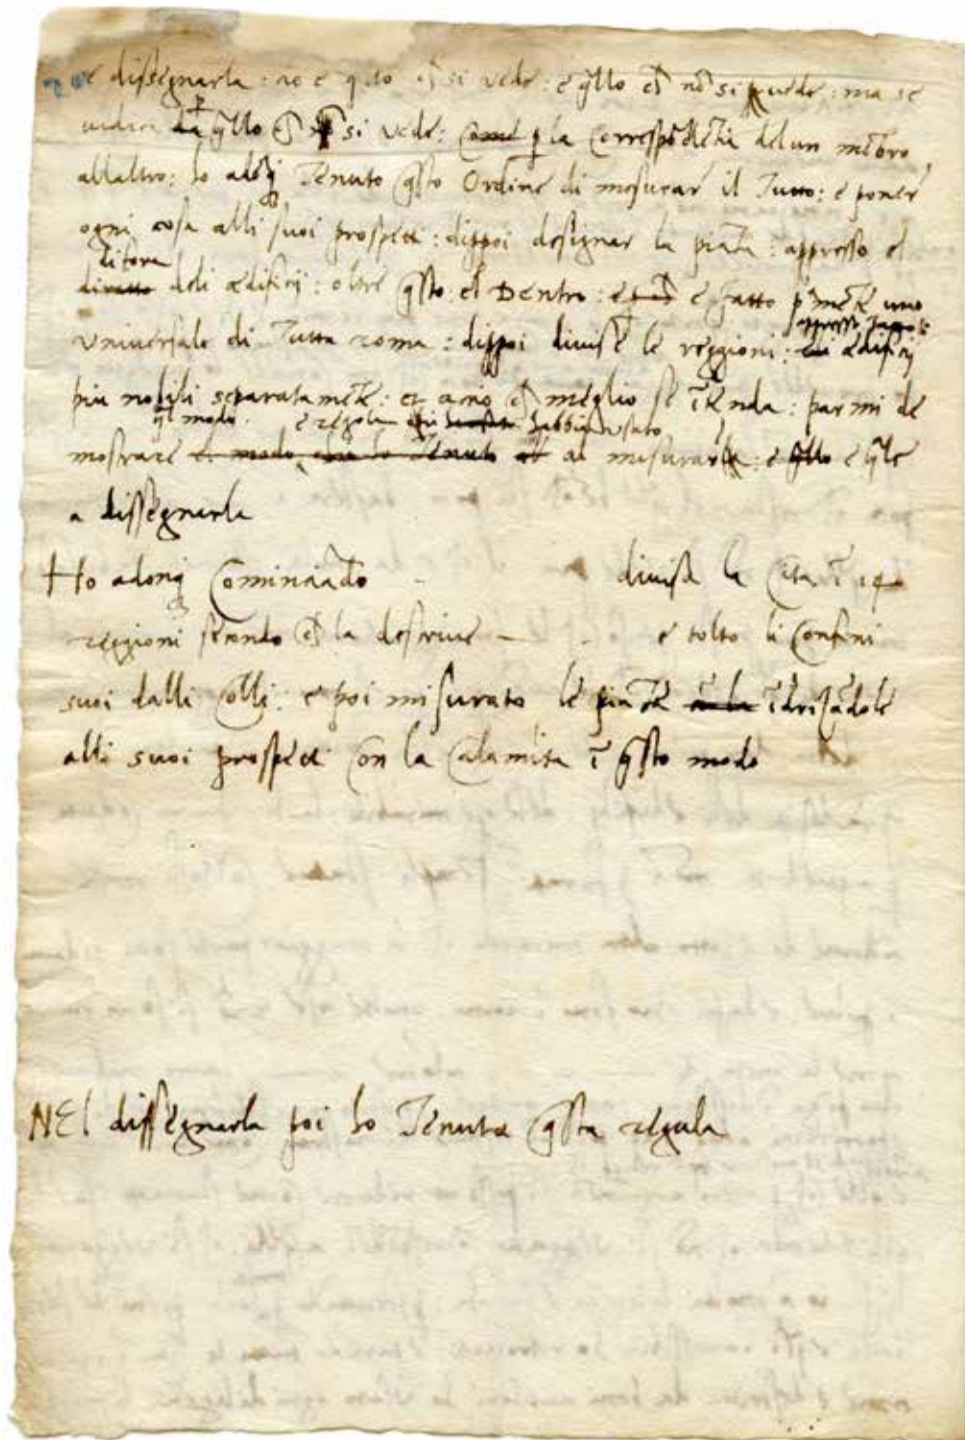 e dissegnarla: no e q̃sto ch̃ si vede: e q̃llo ch̃ nõ si vede: ma se
vedra ꝑ q̃llo ch̃ si vede: come ꝑ la Correspõdẽtia de lun mẽbro
allaltro: ho adõq̃ Tenuto q̃sto Ordine di mesurar il Tutto: e poner
ogni cosa alli suoi prospetti: dippoi designar la piãta: appresso el
di fora
deli ædificij: oltre q̃sto el Dentro: e fatto p̃mẽte uno
appresso
universale di Tutta roma: dippoi divise le reggioni: ædificij
piu nobili separatamẽte: et acio ch̃ meglio se ĩtenda: parmi de
q̃l modo e regola habbi usato
mostrare el modo che ho tenuto a misurarla: e q̃le
a dissegnarla
Ho adonq̃ Cominciado divisa la Cita ĩ 14
reggioni secondo ch̃ la descrive e tolto li Confini
suoi dalli Colli: e poi misurato le piãte ĩdrizãdole
alli suoi prospetti Con la Calamita ĩ q̃sto modo
NEl dissegnarla poi ho Tenuta q̃sta regula